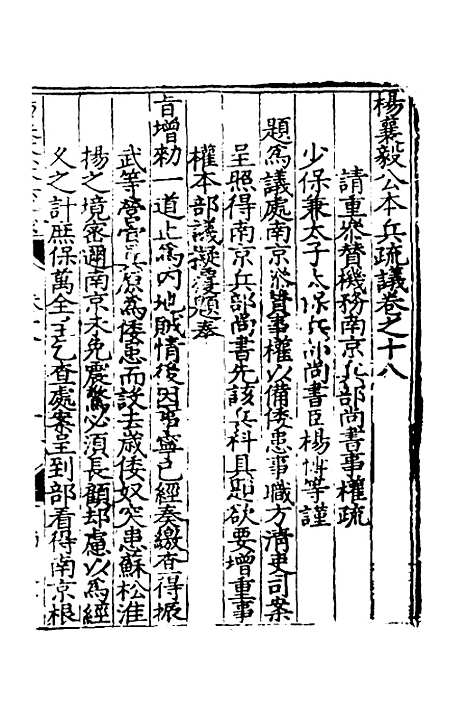 楊襄毅公本兵疏議卷之十八
請重參贊機務南京兵部尚書事權疏
少保兼太子太保兵部尚書臣楊博等謹
題爲議處南京參贊事權以備倭患事職方清吏司案
呈照得南京兵部尚書先該兵科具題欲要增重事
權本部議擬覆題奉
旨增勑一道止爲內地賊情後因事寧已經奏繳查得振
武等營官兵原爲倭患而設去歲倭奴突患蘇松淮
揚之境密邇南京未免震驚必須長顧却慮以爲經
久之計庶保萬全等乞查處案呈到部看得南京根